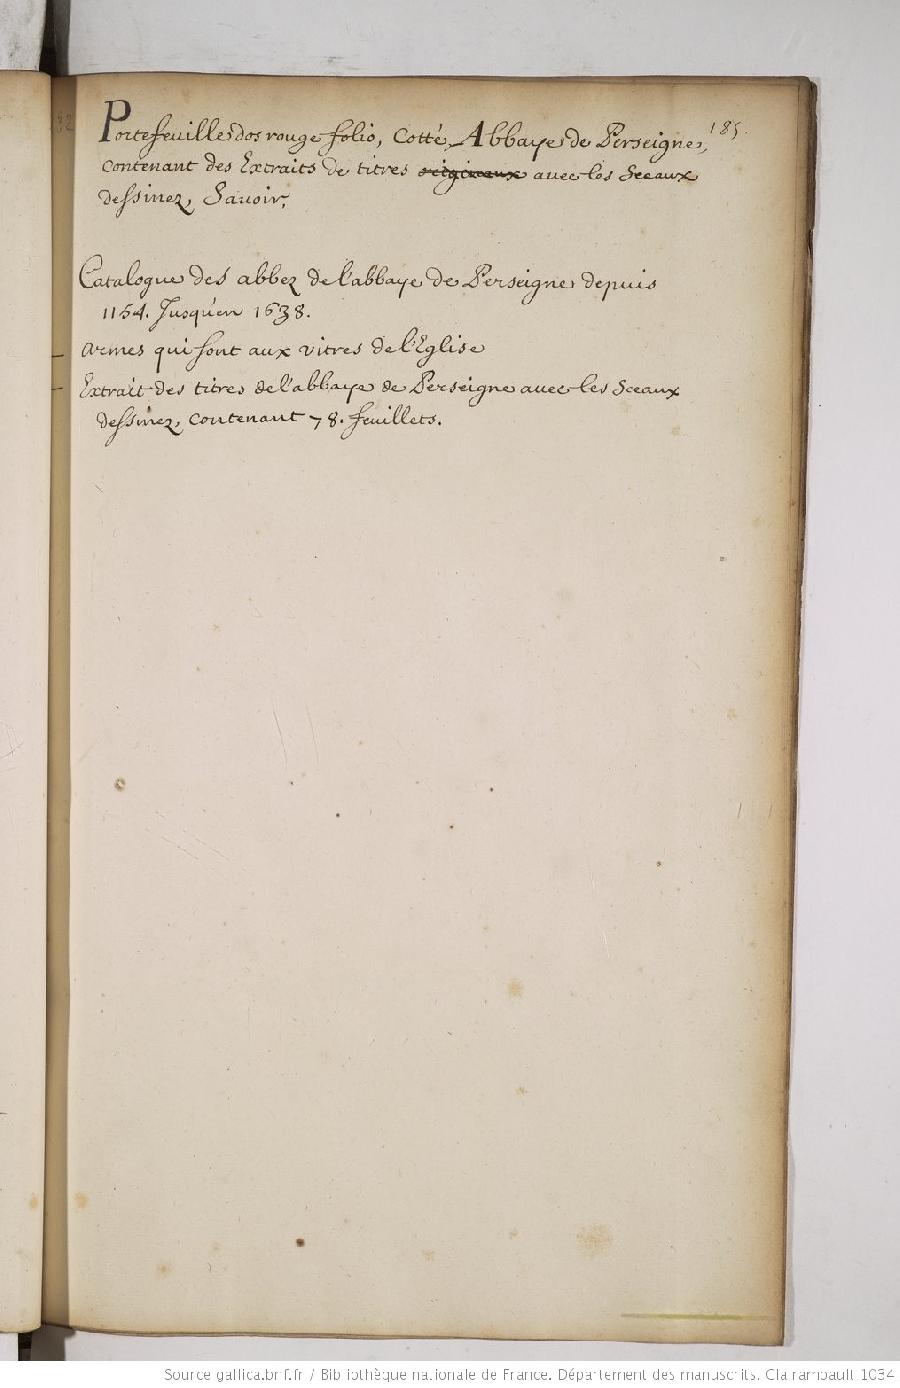 185.
Portefeuille dos rouge folio, Cotté, Abbaye de Perseigne,
contenant des Extraits de titres originaux avec les Sceaux
dessinez, Savoir,
Catalogue des abbez de l'abbaye de Perseigne depuis
1154. Jusqu'en 1638.
Armes qui sont aux vitres de l'Eglise
Extrait des titres de l'abbaye de Perseigne avec les Sceaux
dessinez, contenant 78. feuillets.
Source gallica.bnf.fr / Bibliothèque nationale de France. Département des manuscrits. Clairambault 1034